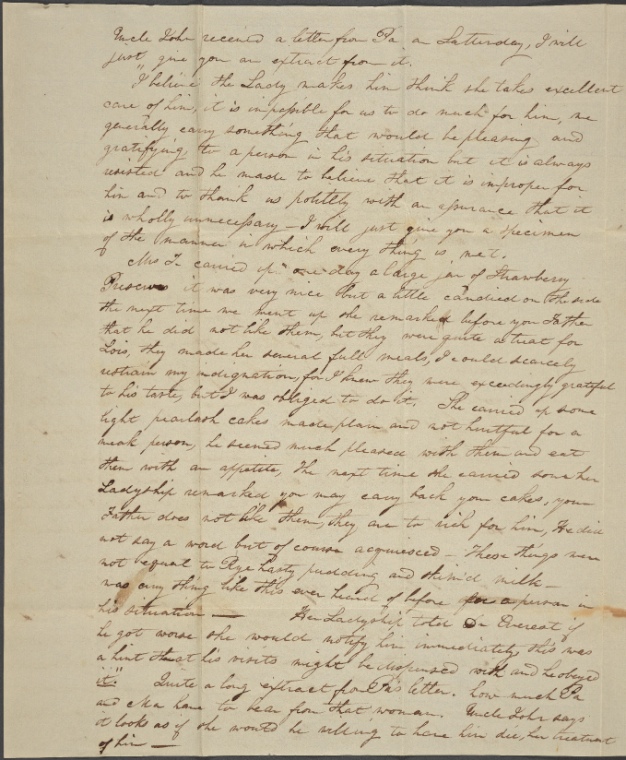 Uncle John received a letter from Pa on Satturday, I will
just give you an extract from it.
"I believe the Lady makes him think she takes excellent
care of him, it is impossible for us to do much for him, we
generally carry something that would be pleasing and
gratifying to a person in his situation but it is always
resisted and he made to believe that it is improper for
him and to thank us politely with an assurance that it
is wholly unnecessary – I will just give you a specimen
of the manner in which every thing is met.
Mrs F. carried up one day a large jar of Strawberry
Preserves it was very nice but a little candied on the side
the next time we went up she remarked before your Father
that he did not like them, but they were quite a treat for
Lois, they made her several full meals, I could scarcely
restrain my indignation, for I knew they were exceedingly grateful
to his taste, but I was obliged to do it. She carried up some
light pearlash cakes made plain and not hurtful for a
weak person, he seemed much pleased with them and eat
them with an appetite, the next time she carried some her
Ladyship remarked you may carry back your cakes, your
Father does not like them, they are to rich for him, He did
not say a word but of course acquiesced – These things were
not equal to Rye hasty pudding and skim'd milk –
was any thing like this ever heard of before for a person in
his situation — Her Ladyship told Dr Everest if
he got worse she would notify him immediately, this was
a hint that his visits might be dispensed with and he obeyed
it." Quite a long extract from Pa's letter. how much Pa
and Ma have to bear from that woman. Uncle John says
it looks as if she would be willing to have him die, her treatment
of him —